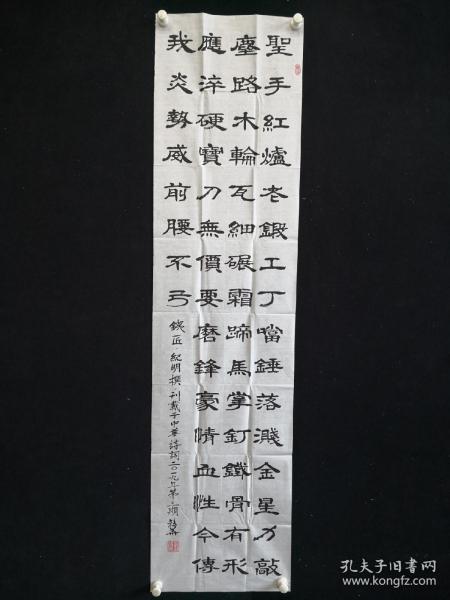 聖手紅爐老鍛工丁噹錘落濺金星力敲
塵路木輪瓦細碾霜蹄馬掌釘鐵骨有形
應淬硬寶刀無價要磨鋒豪情血性今傳
我炎勢威前腰不弓
鐵匠 紀明撰 刊載于中華詩詞二〇一九年第
孔夫子旧书网